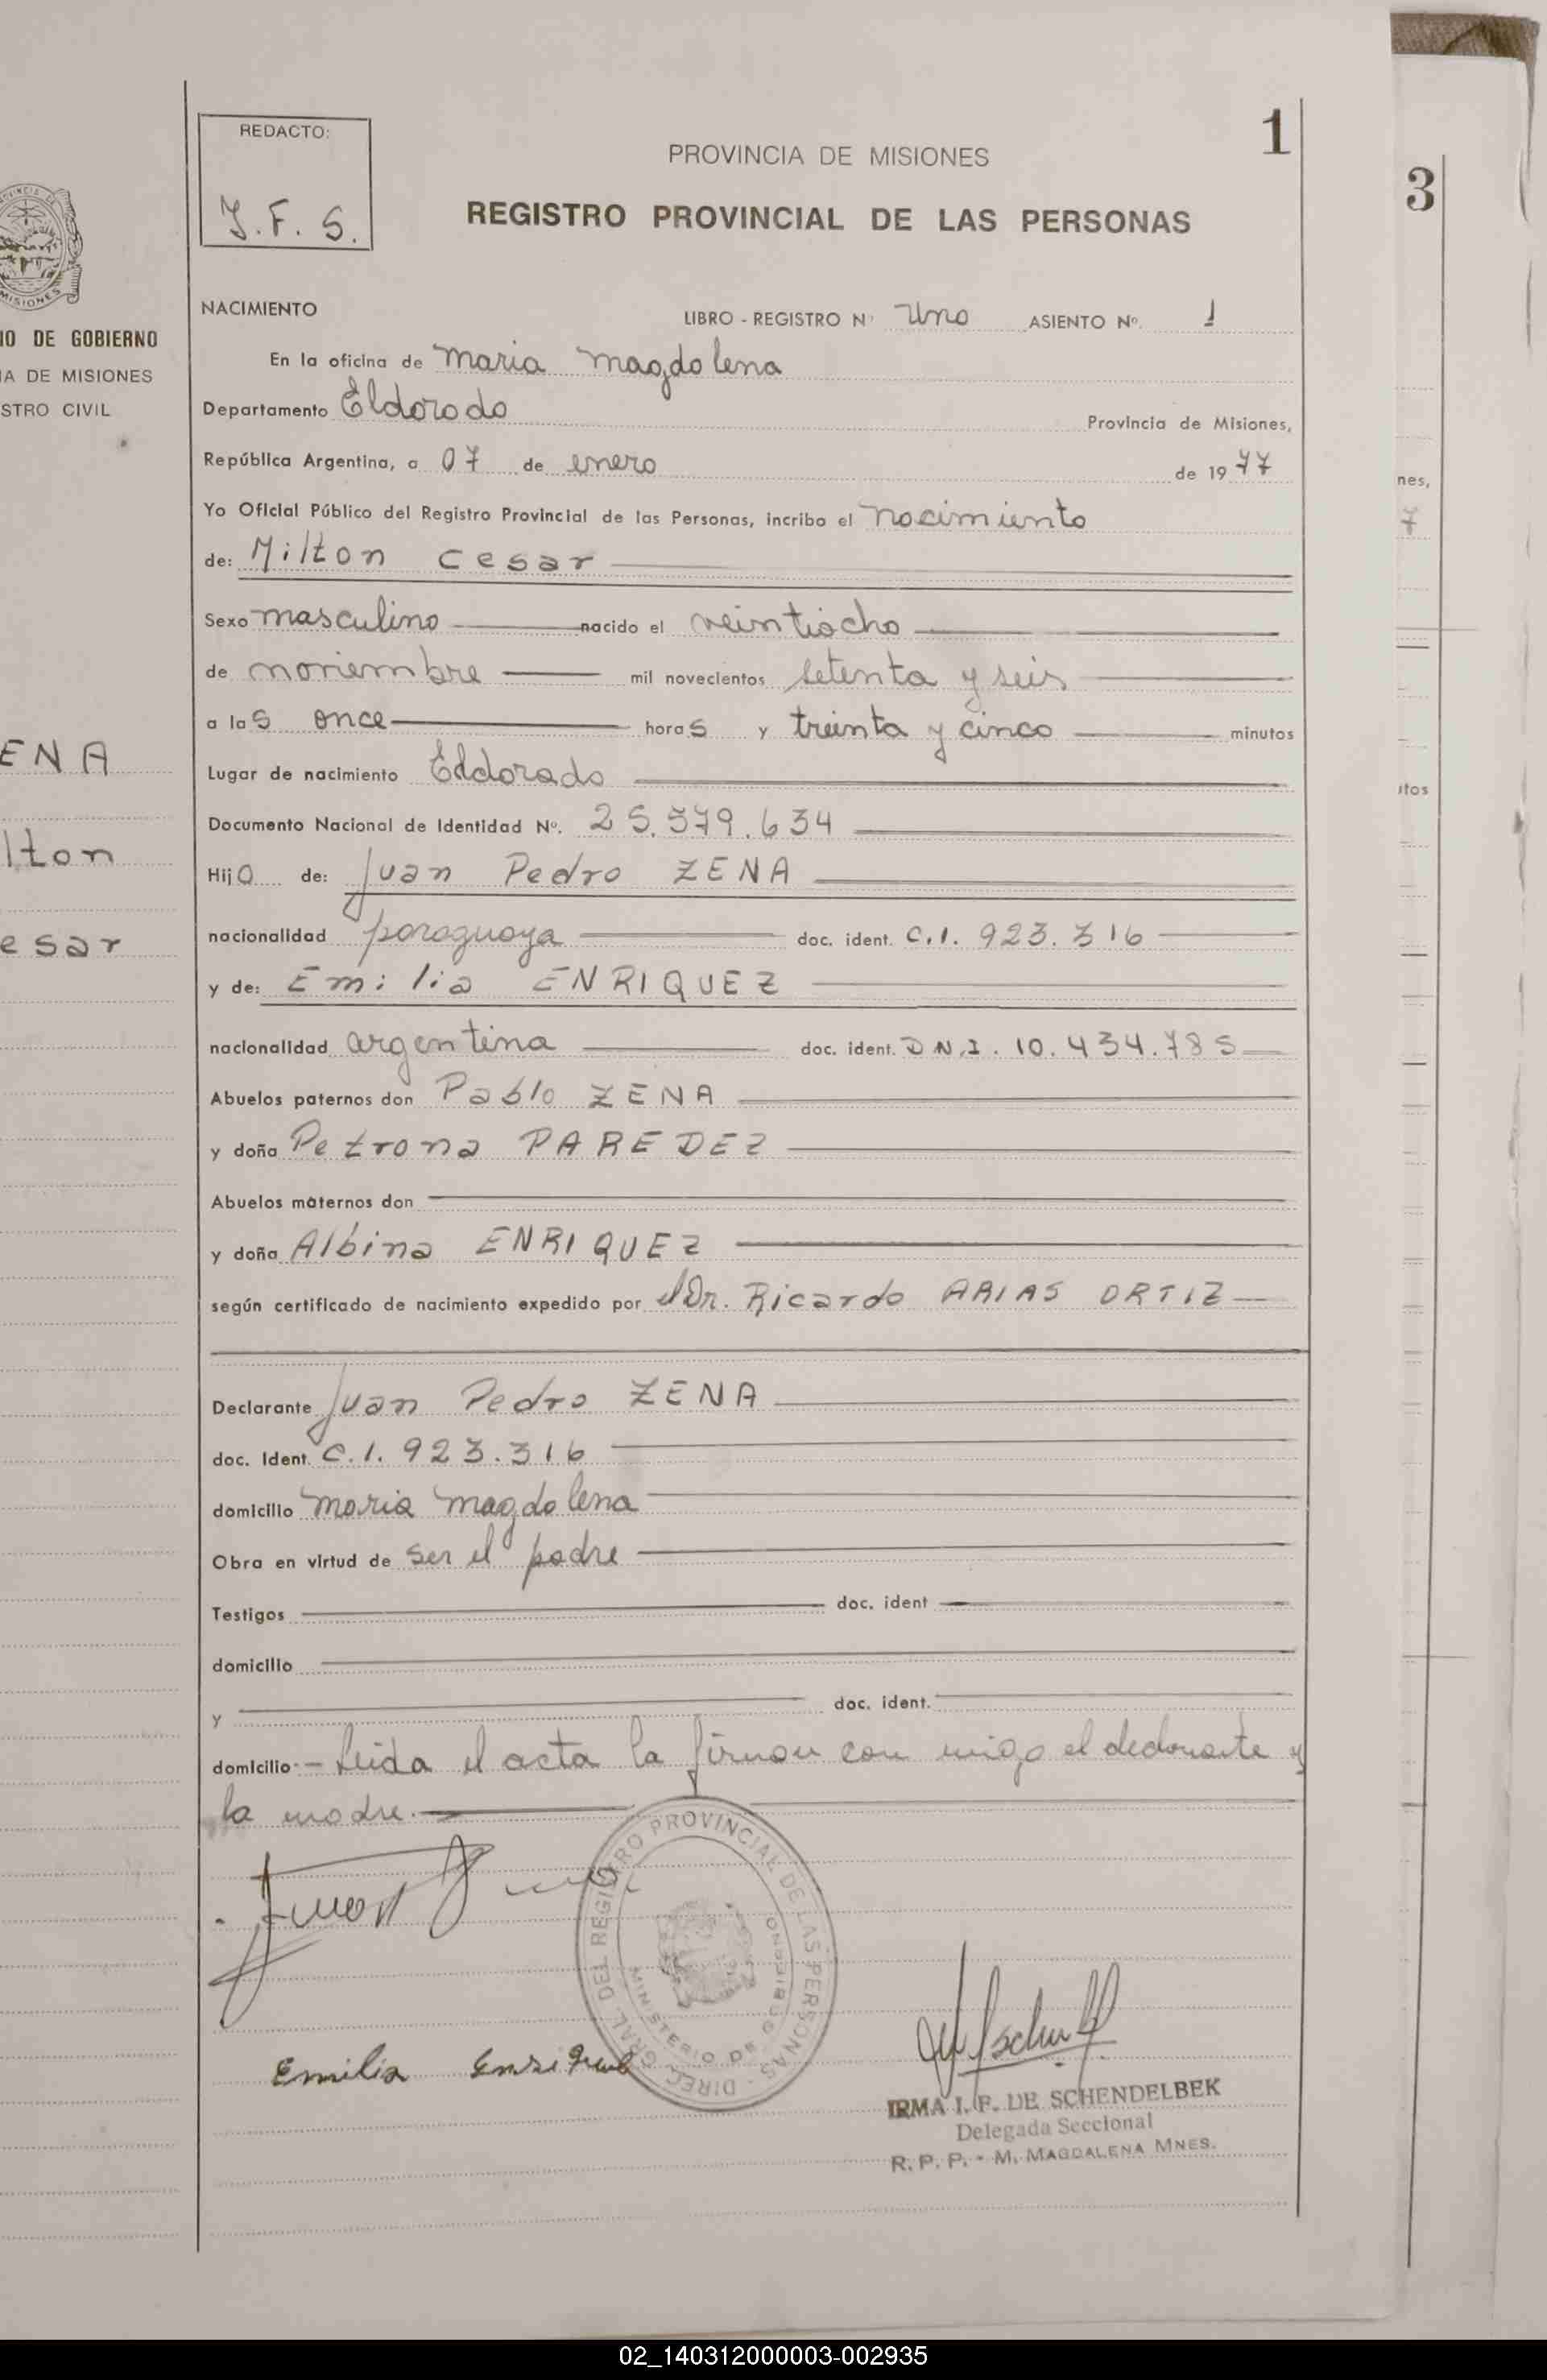 REDACTO:
J. F. S.
1
PROVINCIA DE MISIONES
REGISTRO PROVINCIAL DE LAS PERSONAS
NACIMIENTO
LIBRO - REGISTRO Nº Uno ASIENTO Nº. 1
En la oficina de Maria Magdalena
Departamento Eldorado
Provincia de Misiones,
República Argentina, a 07 de enero de 1977
Yo Oficial Público del Registro Provincial de las Personas, incribo el nacimiento
de: Milton Cesar
Sexo masculino nacido el veintiocho
de noviembre mil novecientos setenta y seis
a las once horas y treinta y cinco minutos
Lugar de nacimiento Eldorado
Documento Nacional de Identidad Nº. 25.579.634
Hijo de: Juan Pedro ZENA
nacionalidad paraguaya doc. ident. C.I. 923.316
y de: Emilia ENRIQUEZ
nacionalidad argentina doc. ident. D.N.I. 10.434.785
Abuelos paternos don Pablo ZENA
y doña Petrona PAREDEZ
Abuelos maternos don
y doña Albina ENRIQUEZ
según certificado de nacimiento expedido por el Dr. Ricardo ARIAS ORTIZ
Declarante Juan Pedro ZENA
doc. Ident. C.I. 923.316
domicilio Maria Magdalena
Obra en virtud de ser el padre
Testigos doc. ident
domicilio
y doc. ident.
domicilio - Leida el acta la firman con migo el declarante y
la madre.
DIREC. GRAL. DEL REGISTRO PROVINCIAL DE LAS PERSONAS -
MINISTERIO DE GOBIERNO
Emilia Enriquez
IRMA I. F. DE SCHENDELBEK
Delegada Seccional
R. P. P. - M. MAGDALENA MNES.
MISIONES
IO DE GOBIERNO
IA DE MISIONES
STRO CIVIL
ENA
lton
esar
3
nes,
7
itos
02_140312000003-002935